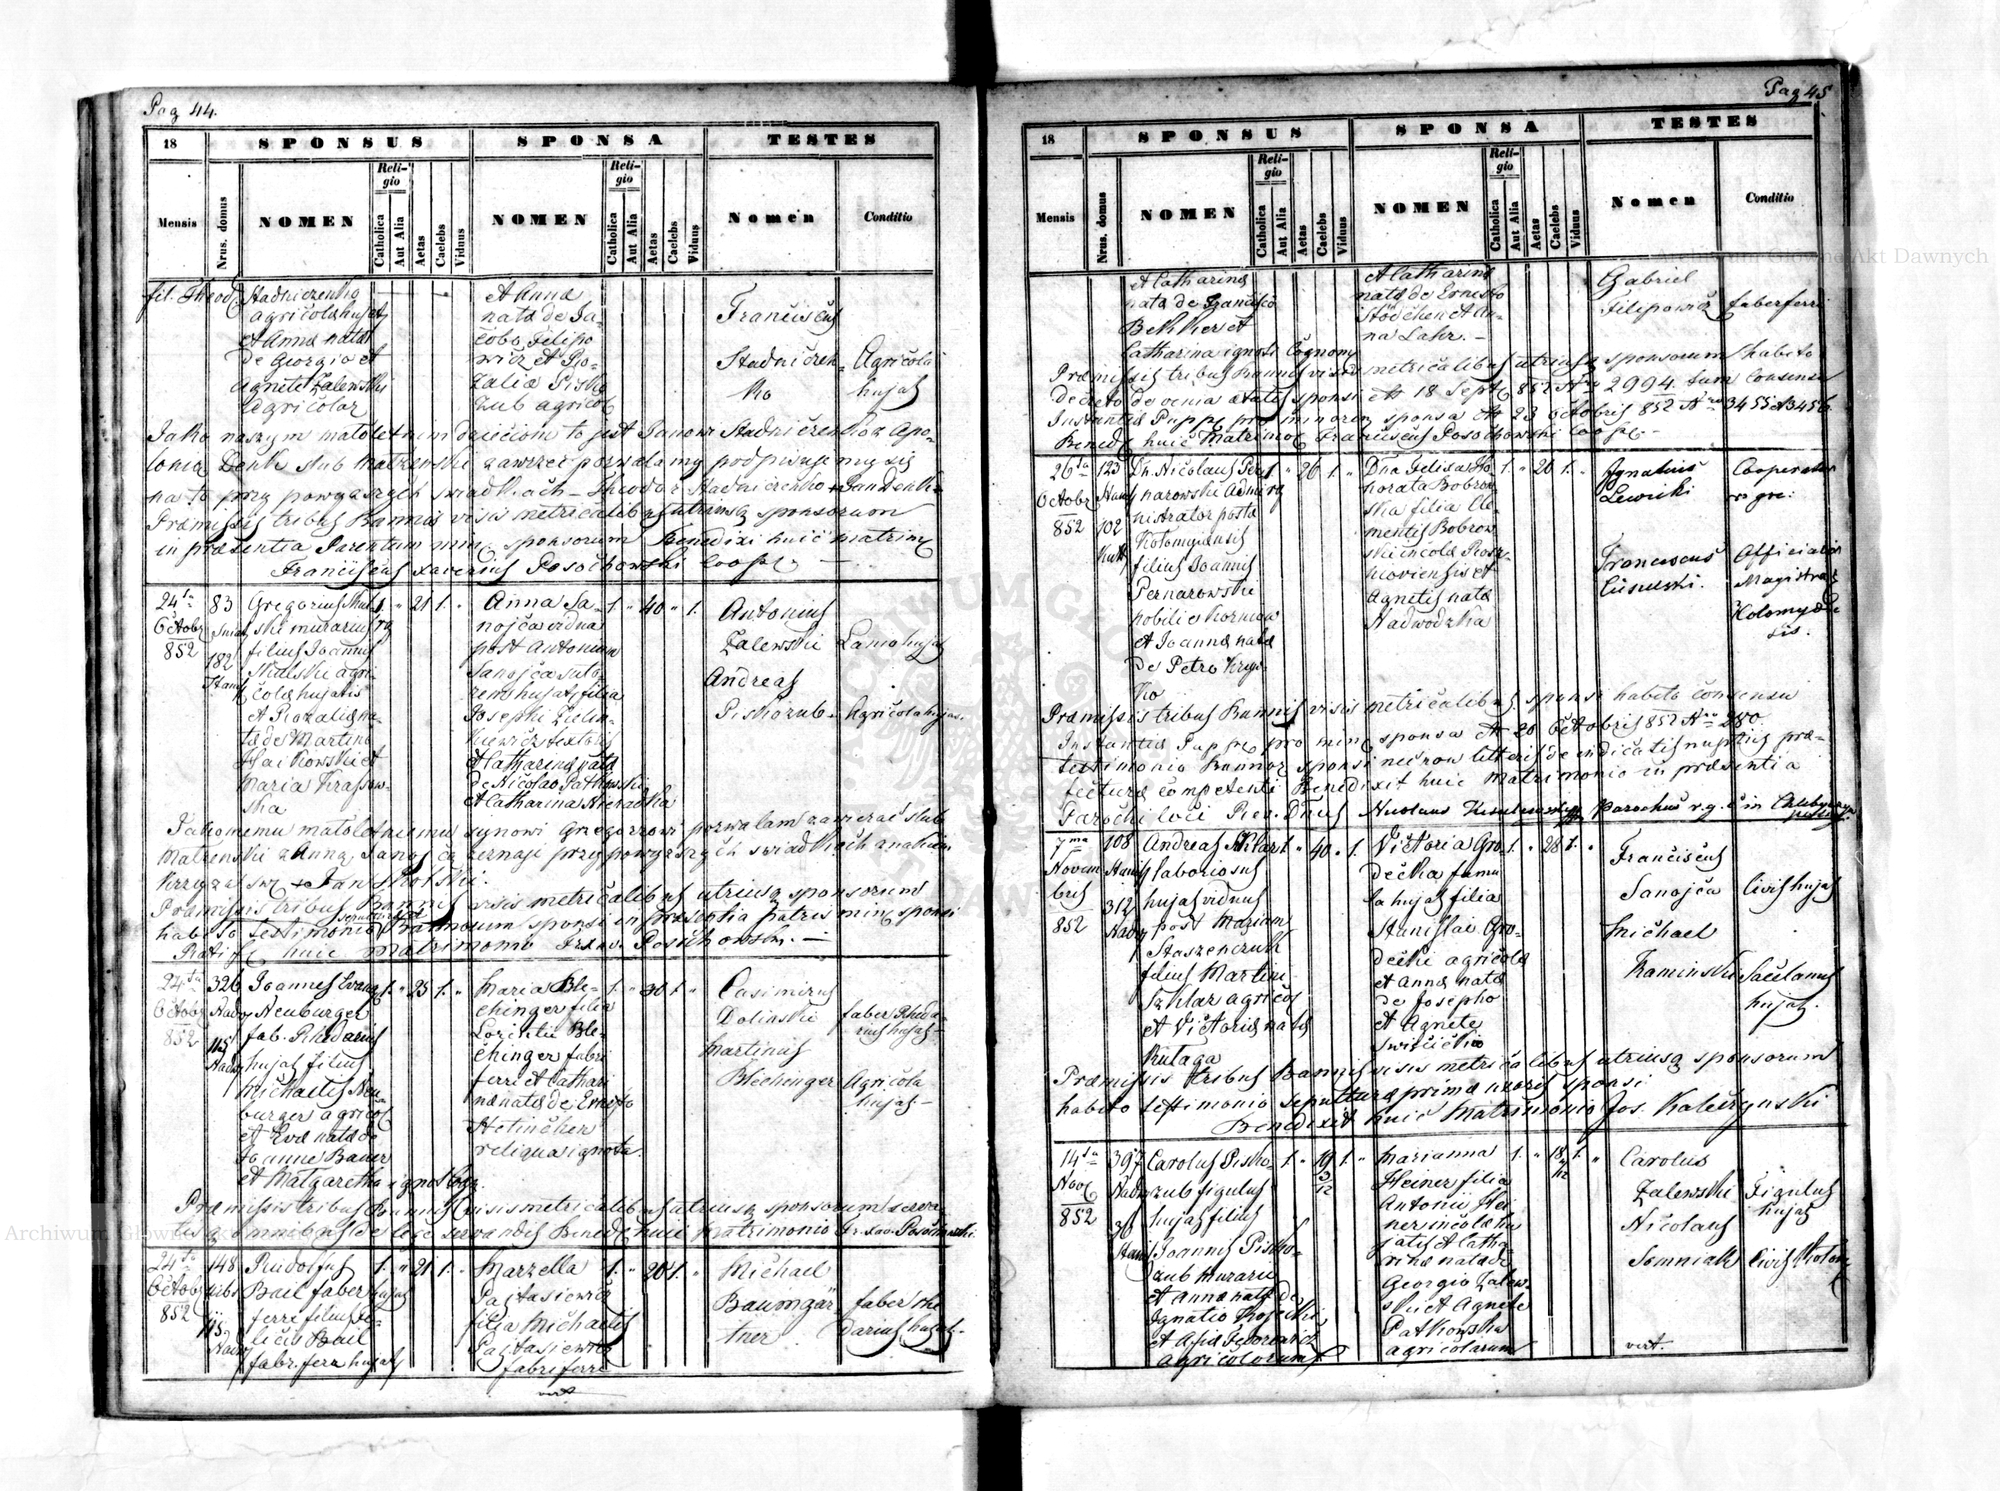 Pag 44.
18
SPONSUS
SPONSA
TESTES
Mensis
Nrus. domus
NOMEN
Religio
Catholica
Aut Alia
Aetas
Caelebs
Viduus
NOMEN
Religio
Catholica
Aut Alia
Aetas
Caelebs
Viduus
Nomen
Conditio
fil. Theod.
Stadniczenko
agricola hujat
et Anna nata
de Georgio et
Agnete Zalewski
Agricolar
et Anna
nata de Ja-
cobo Filipo
wicz et Ro-
zalia Pisko
zub agricol
Franciscus
Stadniczen-
ko
Agricola
hujas
Jako naszym małoletnim dzieciom to jest Janowi Stadniczenko z Apo-
lonią Denk slub małżenski zawrzeć pozwalamy podpisujemy się
na to przy powyższych swiadkach - Theodor Stadniczenko + Jan Denk -
Præmissis tribus Bannis visis metricalibus utriusq sponsorum
in præsentia Parentum min. sponsorum Benedixi huic matrim
Franciscus Xaverius Posochowski Coop.
24ta
Octobr
852
83
182
Gregorius Skal
ski murarius
filius Joannis
Skalski agri-
cola hujatis
et Rozalia na-
ta de Martino
Hajkowski et
Maria Krassow-
ska
1. " 21 1. "
Anna Sa-
nojca vidua
post Antonium
Sanojca suto-
rem hujat filia
Josephi Zielin-
kiewicz textoris
et Catharina nata
de Nicolao Patkowski
et Catharina Sieradzka
1. " 40 " 1.
Antonius
Zalewski
Lanio hujas
Andreas
Piskozub
Agricola hujas.
Jako memu małoletniemu synowi Gregorzowi pozwalam zawierać slub
Małżenski z Anną Sanojca zeznaję przy powyższych swiadkach znakiem
krzyża sw. + Jan Skalski.
Præmissis tribus Bannis visis metricalibus utriusq sponsorum
habito testimonio Bannorum sponsi in præsentia patris min. sponsi
huic Matrimonio Posochowski. -
24ta
Octobr
852
326
Nadw
115
Nadw
Joannes Evang
Neuburger
fab. Rhedarius
hujas filius
Michaelis Neu-
burger agricol
et Eva nata de
Joanne Bauer
et Margaretha ignot. Cogn.
1. " 23 1. "
Maria Ble-
chinger filia
Lorintii Ble-
chinger fabri
ferri et Cathari
næ nata de Ernesto
Stetinchen
reliqua ignota.
1. " 30 1. "
Casimirus
Dolinski
faber Rheda-
rius hujas -
Martinus
Blechinger
Agricola
hujas -
Præmissis tribus Bannis visis metricalibus utriusq sponsorum serva-
tisq omnibus de lege servandis Bened. huic Matrimonio Fr. Xav. Posochowski.
24ta
Octobr
852
148
115.
Nadw
Rudolfus
Bail faber
ferri filius Fe-
licis Bail
fabr. ferri hujas
1. " 21 1. "
Marzella
Pajtasiewicz
filia Michaelis
Pajtasiewicz
fabri ferri
1. " 20 1. "
Michael
Baumgär
tner
faber rhe
darius hujas.
vert
Pag 45
18
SPONSUS
SPONSA
TESTES
Mensis
Nrus. domus
NOMEN
Religio
Catholica
Aut Alia
Aetas
Caelebs
Viduus
NOMEN
Religio
Catholica
Aut Alia
Aetas
Caelebs
Viduus
Nomen
Conditio
et Catharina
nata de Francisco
Bekker et
Catharina ignoti Cognom
et Catharina
nata de Ernesto
Stödchen et An-
na Lahr. -
Gabriel
Filipowicz
faber ferri
Præmissis tribus Bannis visis metricalibus utriusq sponsorum habito
decreto de venia ætatis sponsi dto 18 Septr 852 Nro 2994. tum consensu
Instantiæ Pupp. pro minoren sponsa dto 23 Octobris 852 Nro 3455 et 3456.
Bened. huic Matrimon Franciscus Posochowski Coop.
26ta
Octobr
852
123
102
Dn. Nicolaus Per
narowski Admi
nistrator postæ
Kolomyensis
filius Joannis
Pernarowski
nobilis
et Joanna nata
de Petro
1. " 26 1. "
Dna Felixa Ho-
norata Bobrow
ska filia Cle-
mentis Bobrow
ski incolæ
et
Agnetis nata
Nadwodzka
1. " 20 1. "
Ignatius
Lewicki
Cooperator
r. gr.
Franciscus
Officialis
Magistrat
Kolomyen
sis.
Præmissis tribus Bannis visis metricalibus sponsi habito consensu
Instantiæ Pupp. pro min. sponsa dto 20 Octobris 852 Nro 280.
testimonio Bannor. sponsi necnon litteris de indicatis nuptiis præ-
fecturæ competenti Benedixit huic matrimonio in præsentia
Parochi loci Rev. Dnus Parochus r. g. c in
7ma
Novem
bris
852
108
312
Nadw
Andreas Szklar
laboriosus
hujas viduus
post Mariam
Staszenczuk
filius Martini
Szklar agricol
et Victoria nata
Kutaga
1. " 40 " 1.
Victoria Gro
decka famu
la hujas filia
Stanislai Gro-
decki agricola
et Anna nata
de Josepho
et Agnete
Swiscicki
1. " 28 1. "
Franciscus
Sanojca
Civis hujas
Michael
Kaminski
Sacelanus
hujas.
Præmissis tribus Bannis visis metricalibus utriusq sponsorum
habito testimonio sepulturæ primæ uxoris sponsi
Benedixit huic Matrimonio Jos. Kaleczynski
14ta
Novr
852
397
Nadw
36
Carolus Pisko
zub figulus
hujas filius
Joannis Pisko-
zub murarii
et Anna nata de
Ignatio
et
agricolorum
1. " 19 3/12 1. "
Marianna
Heiner filia
Antonii Hei
ner incolæ hu
jatis et Catha-
rina nata de
Georgio Zalew-
ski et Agnete
Patkowska
agricolarum
1. " 18 1. "
Carolus
Zalewski
Figulus
hujas
Nicolaus
Semniak
Civis
vert.
Archiwum Główne Akt Dawnych